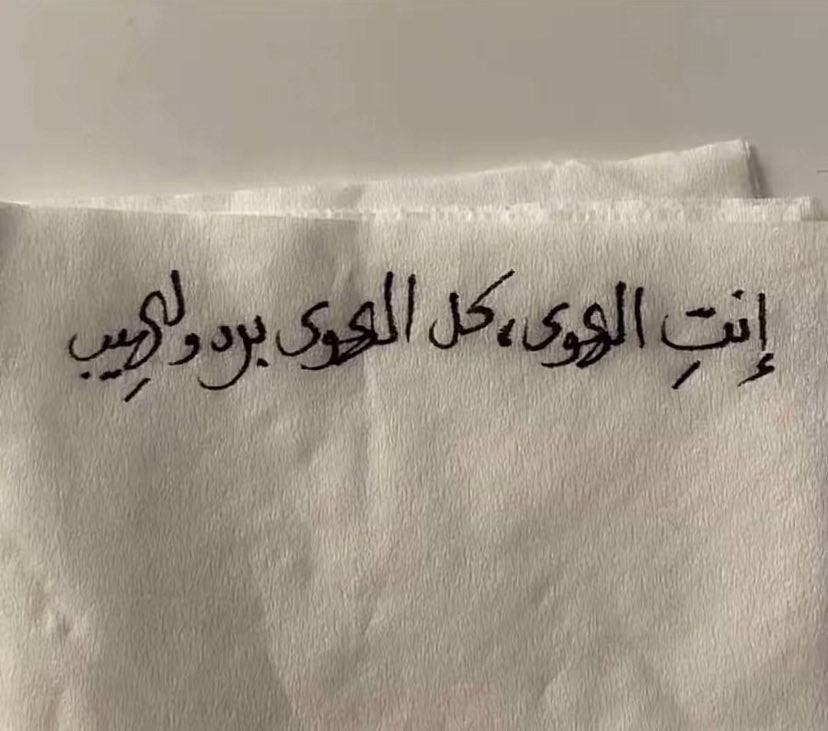 إنتِ الهوى، كل الهوى برد ولهِيب